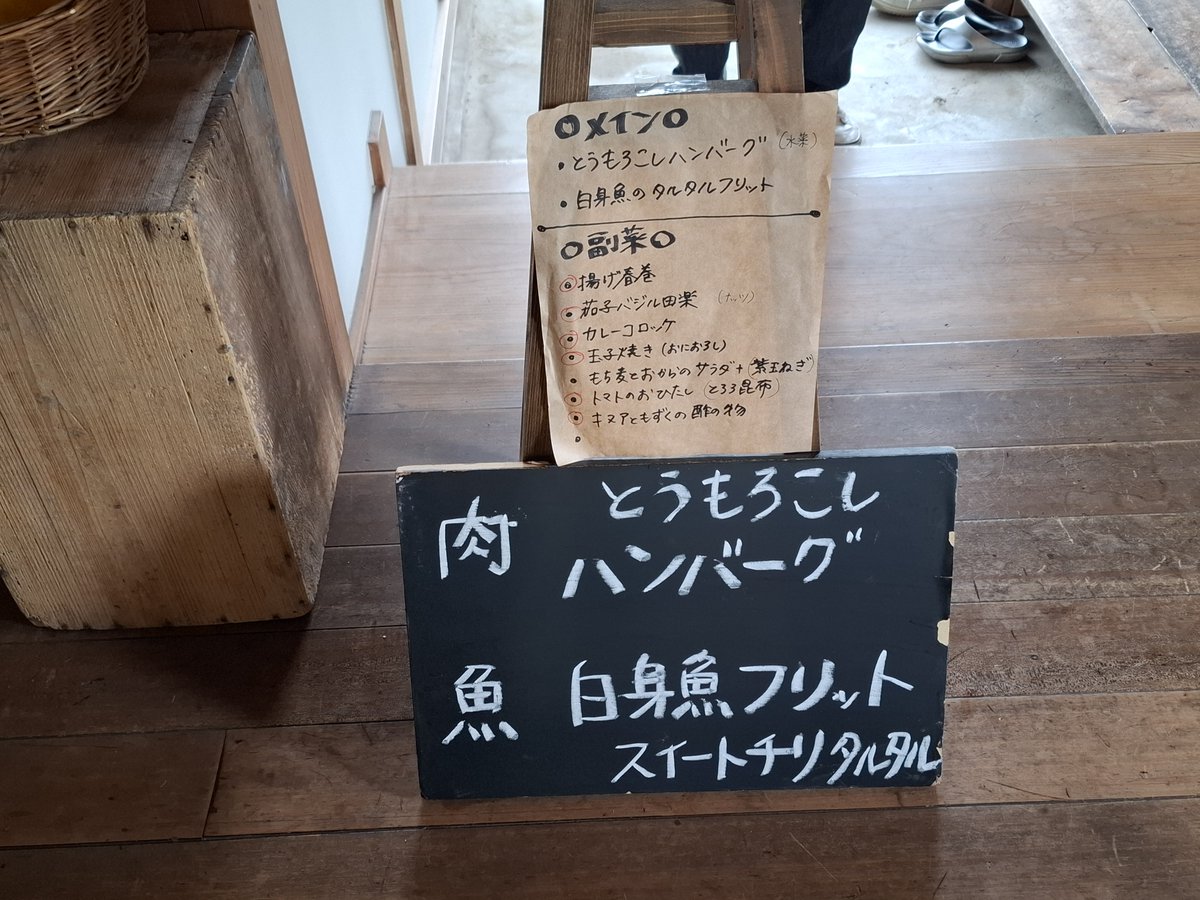 ○メイン○
・とうもろこしハンバーグ (水菜)
・白身魚のタルタルフリット
○副菜○
・揚げ春巻
・茄子バジル田楽 (ナッツ)
・カレーコロッケ
・玉子焼き (おにおろし)
・もち麦とおからのサラダ+(紫玉ねぎ)
・トマトのおひたし (とろろ昆布)
・キヌアともずくの酢の物
肉 とうもろこし
ハンバーグ
魚 白身魚フリット
スイートチリタルタル